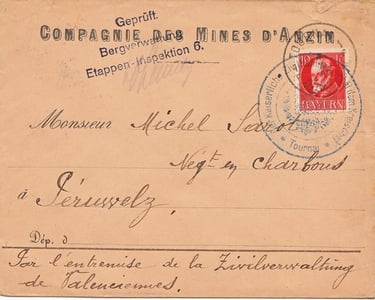 Geprüft.
Bergverwaltung
Etappen-Inspektion 6.
COMPAGNIE DES MINES D'ANZIN
10
BAYERN
Kaiserliche
Tournai
Monsieur Michel
Negt en Charbons
à Péruwelz,
Dép. d
Par l'entremise de la Zivilverwaltung
de Valenciennes.